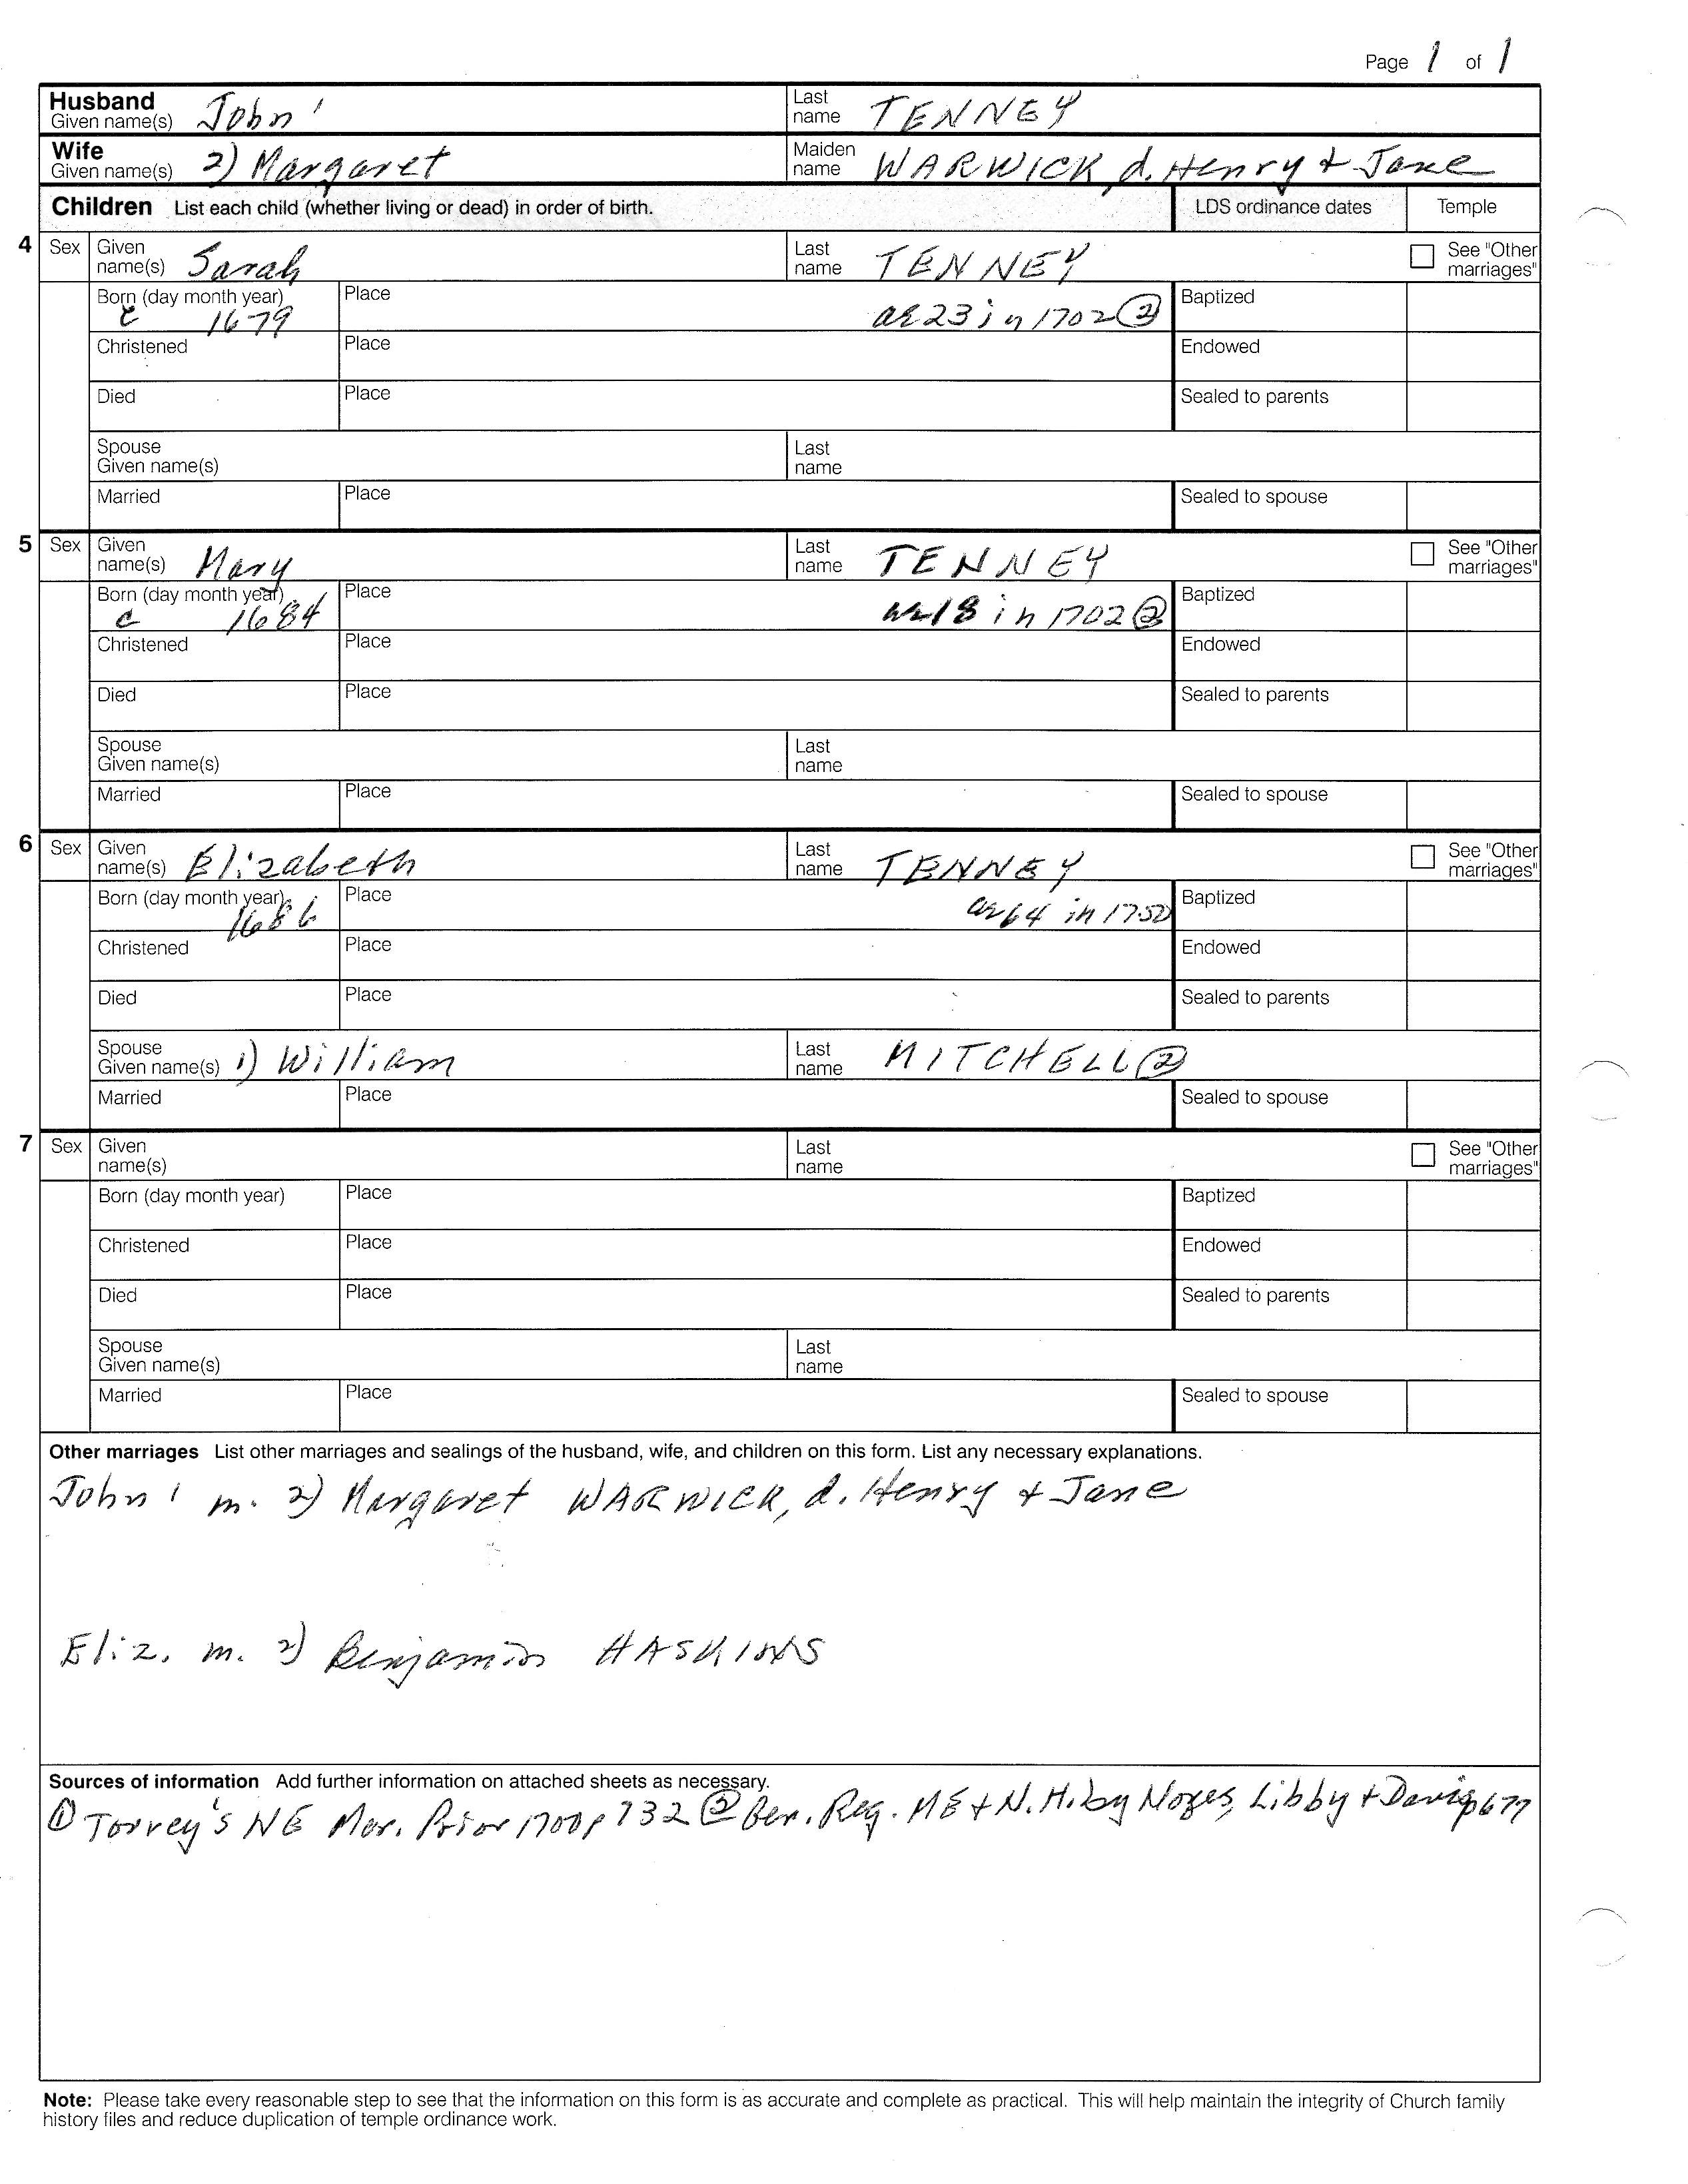 Page 1 of 1
Husband Given name(s) John ¹ Last name TENNEY
Wife Given name(s) 2) Margaret Maiden name WARWICK, d. Henry + Jane
Children List each child (whether living or dead) in order of birth. LDS ordinance dates Temple
4 Sex Given name(s) Sarah Last name TENNEY See "Other marriages"
Born (day month year) c 1679 Place ae 23 in 1702 ② Baptized
Christened Place Endowed
Died Place Sealed to parents
Spouse Given name(s) Last name
Married Place Sealed to spouse
5 Sex Given name(s) Mary Last name TENNEY See "Other marriages"
Born (day month year) c 1684 Place ae 18 in 1702 ② Baptized
Christened Place Endowed
Died Place Sealed to parents
Spouse Given name(s) Last name
Married Place Sealed to spouse
6 Sex Given name(s) Elizabeth Last name TENNEY See "Other marriages"
Born (day month year) 1686 Place ae 64 in 1750 Baptized
Christened Place Endowed
Died Place Sealed to parents
Spouse Given name(s) 1) William Last name MITCHELL ②
Married Place Sealed to spouse
7 Sex Given name(s) Last name See "Other marriages"
Born (day month year) Place Baptized
Christened Place Endowed
Died Place Sealed to parents
Spouse Given name(s) Last name
Married Place Sealed to spouse
Other marriages List other marriages and sealings of the husband, wife, and children on this form. List any necessary explanations.
John ¹ m. 2) Margaret WARWICK, d. Henry + Jane
Eliz. m. 2) Benjamin HASKINS
Sources of information Add further information on attached sheets as necessary.
① Torrey's NE Mar. Prior 1700 p 732 ② Gen. Reg. ME + N.H. by Noyes, Libby + Davis p 677
Note: Please take every reasonable step to see that the information on this form is as accurate and complete as practical. This will help maintain the integrity of Church family
history files and reduce duplication of temple ordinance work.